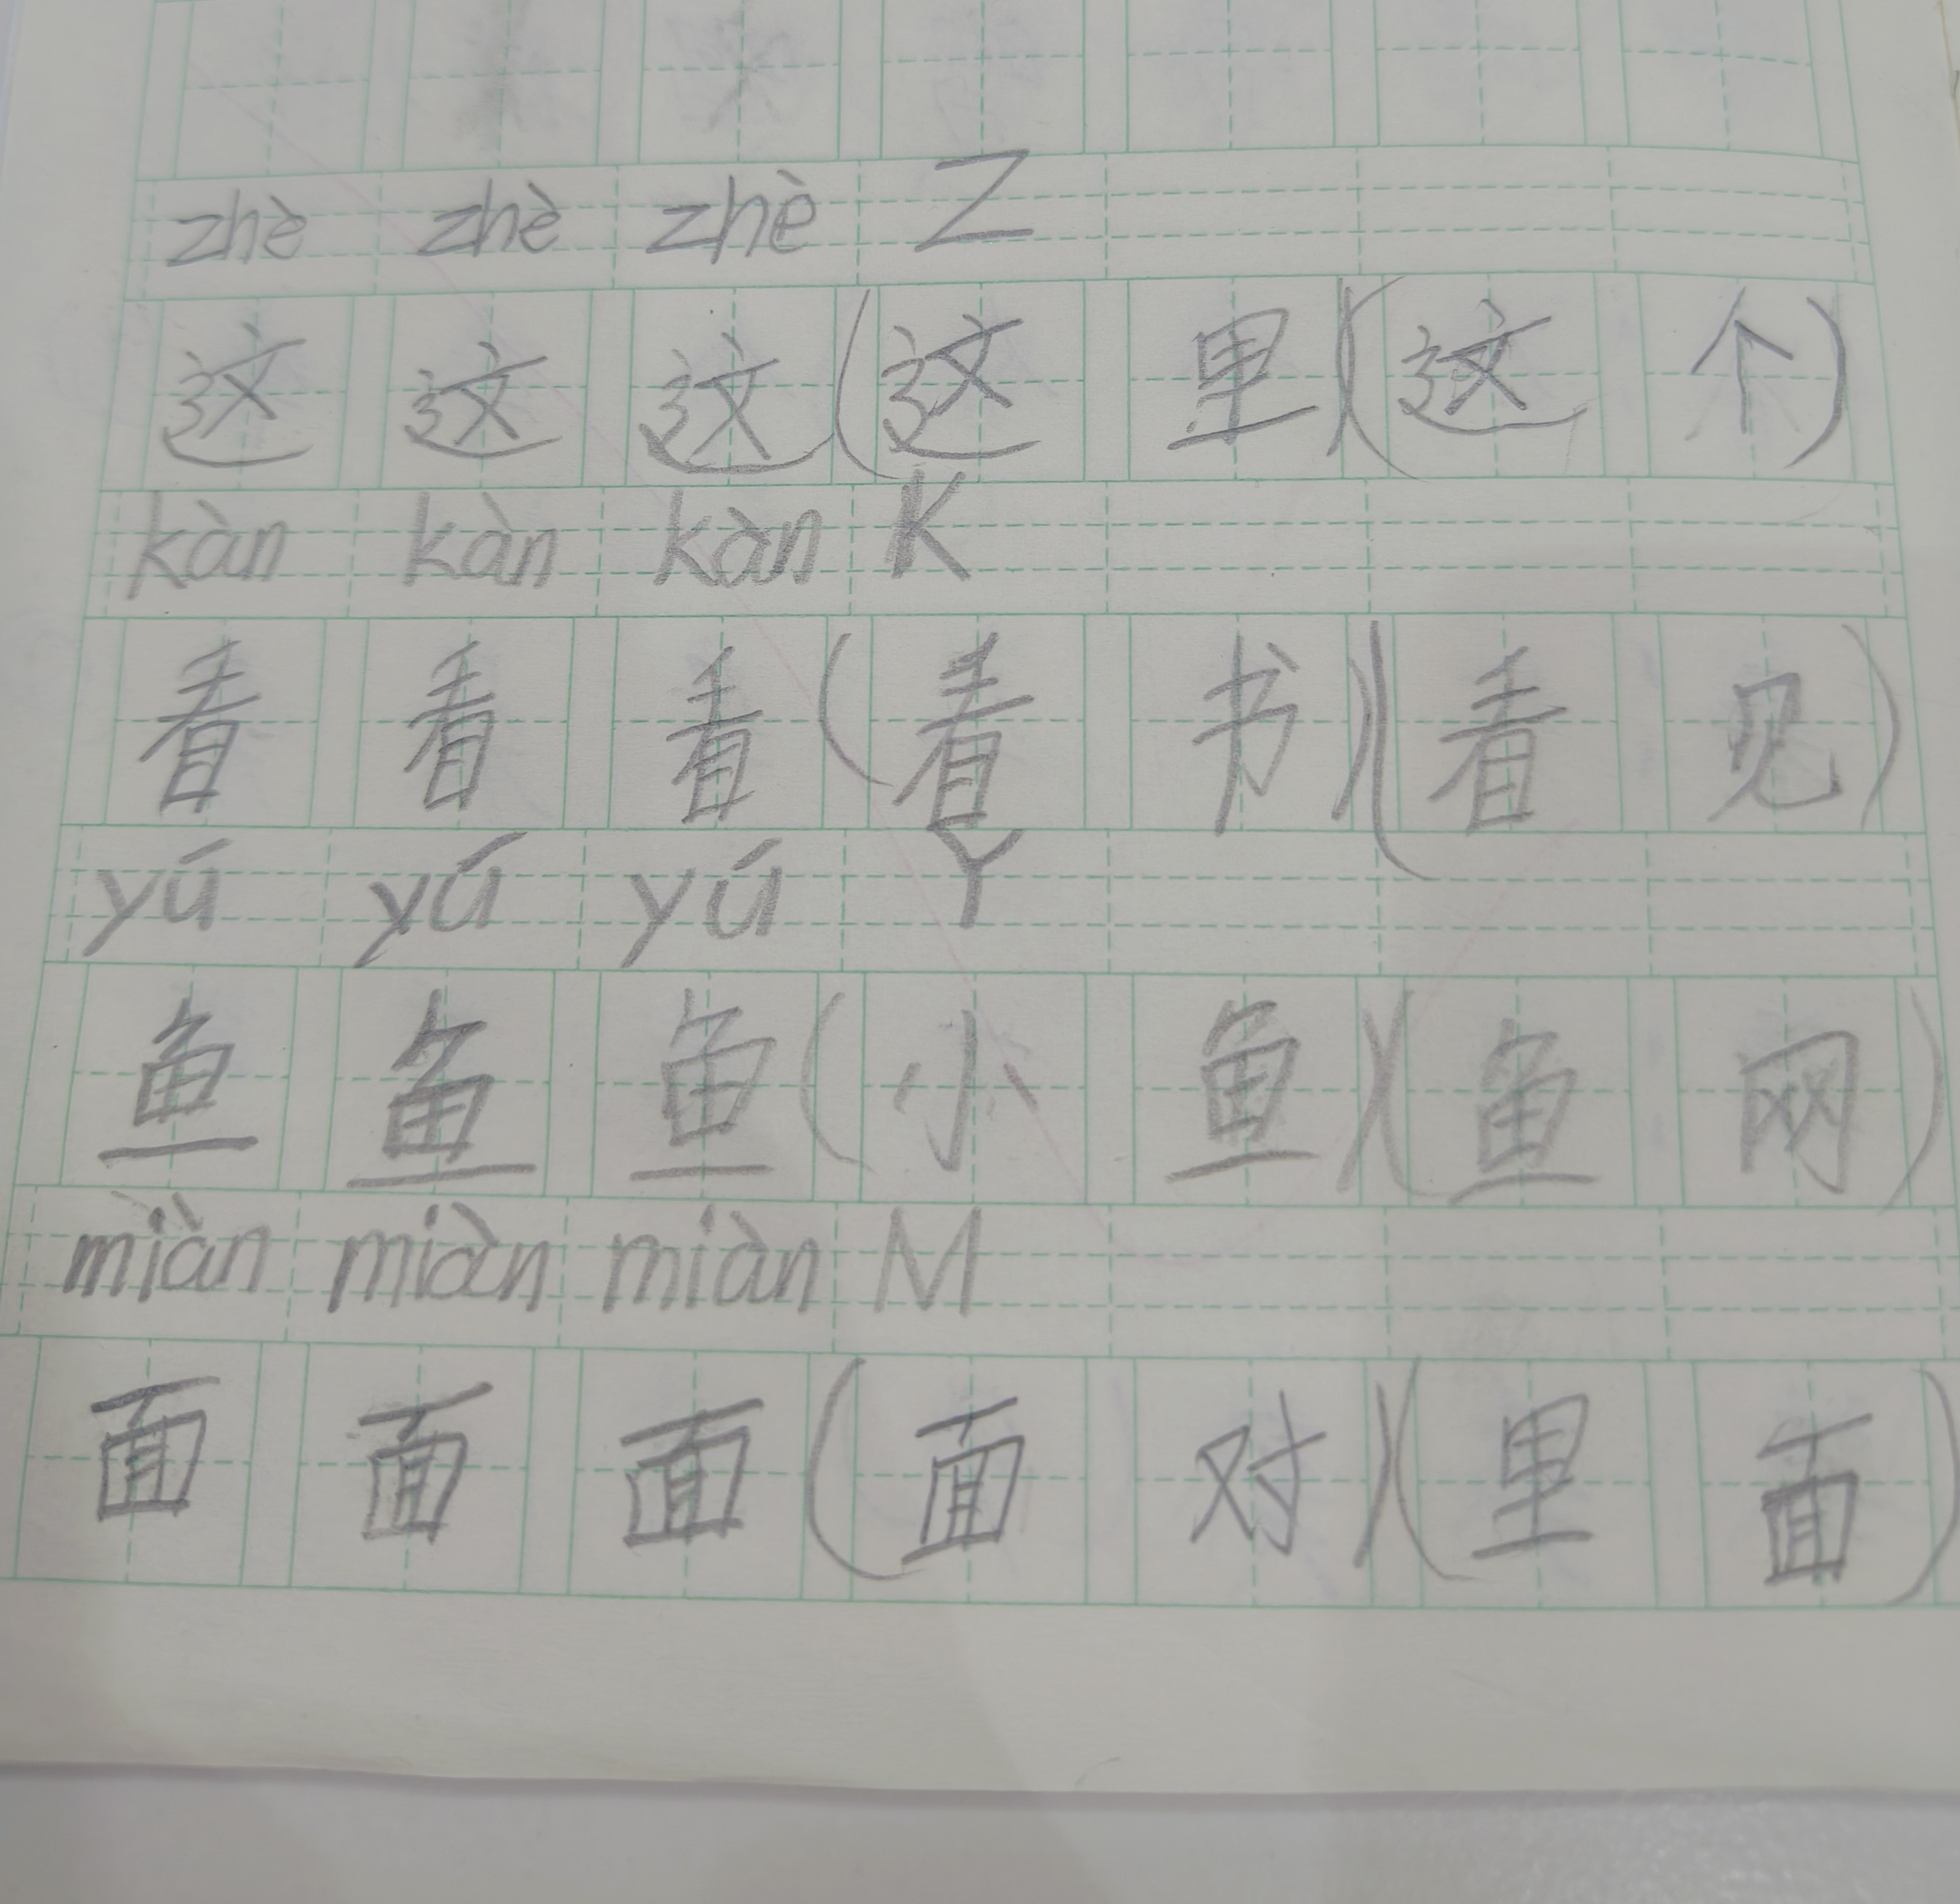 zhè zhè zhè Z
这 这 这 (这 里)(这 个)
kàn kàn kàn K
看 看 看 (看 书)(看 见)
yú yú yú Y
鱼 鱼 鱼 (小 鱼)(鱼 网)
miàn miàn miàn M
面 面 面 (面 对)(里 面)